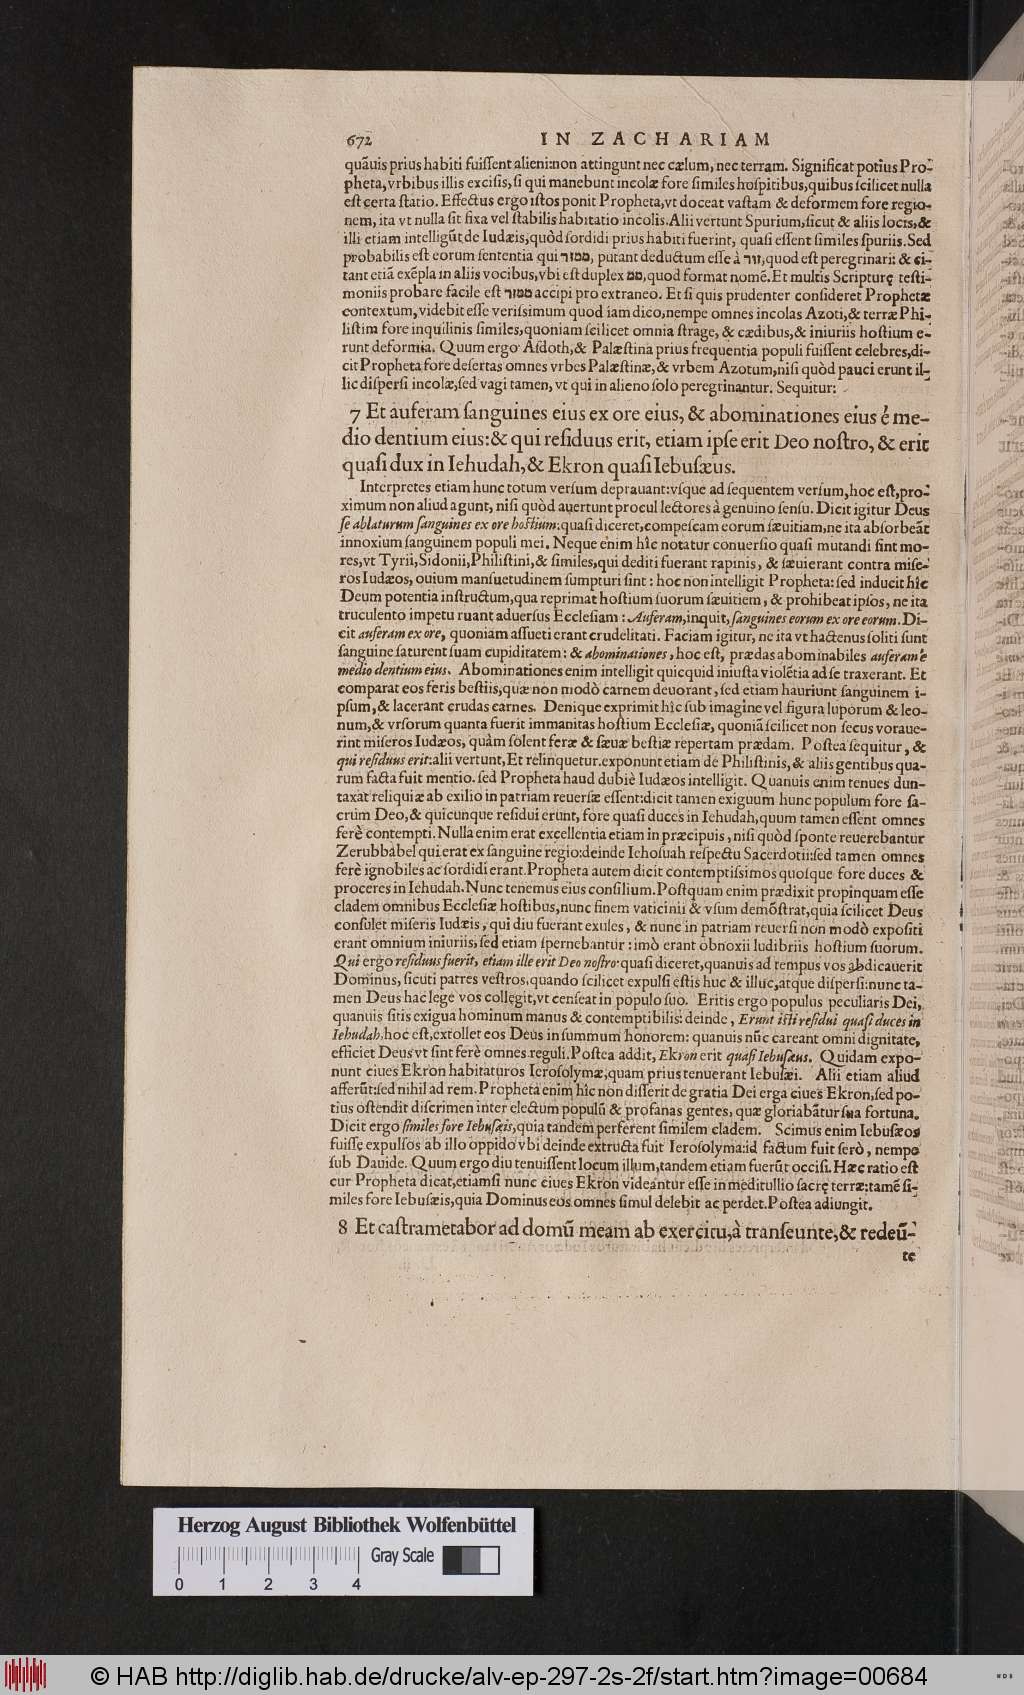 672 IN ZACHARIAM
quãuis prius habiti fuiſſent alieni: non attingunt nec cælum, nec terram. Significat potius Pro-
pheta, vrbibus illis exciſis, ſi qui manebunt incolæ fore ſimiles hoſpitibus, quibus ſcilicet nulla
eſt certa ſtatio. Effectus ergo iſtos ponit Propheta, vt doceat vaſtam & deformem fore regio-
nem, ita vt nulla ſit fixa vel ſtabilis habitatio incolis. Alii vertunt Spurium, ſicut & aliis locis, &
illi etiam intelligũt de Iudæis, quòd ſordidi prius habiti fuerint, quaſi eſſent ſimiles ſpuriis. Sed
probabilis eſt eorum ſententia qui ממזר, putant deductum eſſe à זור, quod eſt peregrinari: & ci-
tant etiã exẽpla in aliis vocibus, vbi eſt duplex מם, quod format nomẽ. Et multis Scripturę teſti-
moniis probare facile eſt ממזר accipi pro extraneo. Et ſi quis prudenter conſideret Prophetæ
contextum, videbit eſſe veriſsimum quod iam dico, nempe omnes incolas Azoti, & terræ Phi-
liſtim fore inquilinis ſimiles, quoniam ſcilicet omnia ſtrage, & cædibus, & iniuriis hoſtium e-
runt deformia. Quum ergo Aſdoth, & Palæſtina prius frequentia populi fuiſſent celebres, di-
cit Propheta fore deſertas omnes vrbes Palæſtinæ, & vrbem Azotum, niſi quòd pauci erunt il-
lic diſperſi incolæ, ſed vagi tamen, vt qui in alieno ſolo peregrinantur. Sequitur:
7 Et auferam ſanguines eius ex ore eius, & abominationes eius é me-
dio dentium eius: & qui reſiduus erit, etiam ipſe erit Deo noſtro, & erit
quaſi dux in Iehudah, & Ekron quaſi Iebuſæus.
Interpretes etiam hunc totum verſum deprauant: vſque ad ſequentem verſum, hoc eſt, pro-
ximum non aliud agunt, niſi quòd auertunt procul lectores à genuino ſenſu. Dicit igitur Deus
ſe ablaturum ſanguines ex ore hoſtium: quaſi diceret, compeſcam eorum ſæuitiam, ne ita abſorbeãt
innoxium ſanguinem populi mei. Neque enim hîc notatur conuerſio quaſi mutandi ſint mo-
res, vt Tyrii, Sidonii, Philiſtini, & ſimiles, qui dediti fuerant rapinis, & ſæuierant contra miſe-
ros Iudæos, ouium manſuetudinem ſumpturi ſint: hoc non intelligit Propheta: ſed inducit hîc
Deum potentia inſtructum, qua reprimat hoſtium ſuorum ſæuitiem, & prohibeat ipſos, ne ita
truculento impetu ruant aduerſus Eccleſiam: Auferam, inquit, ſanguines eorum ex ore eorum. Di-
cit auferam ex ore, quoniam aſſueti erant crudelitati. Faciam igitur, ne ita vt hactenus ſoliti ſunt
ſanguine ſaturent ſuam cupiditatem: & abominationes, hoc eſt, prædas abominabiles auferam è
medio dentium eius. Abominationes enim intelligit quicquid iniuſta violẽtia ad ſe traxerant. Et
comparat eos feris beſtiis, quæ non modò carnem deuorant, ſed etiam hauriunt ſanguinem i-
pſum, & lacerant crudas carnes. Denique exprimit hîc ſub imagine vel figura luporum & leo-
num, & vrſorum quanta fuerit immanitas hoſtium Eccleſiæ, quoniã ſcilicet non ſecus voraue-
rint miſeros Iudæos, quàm ſolent feræ & ſæuæ beſtiæ repertam prædam. Poſtea ſequitur, &
qui reſiduus erit: alii vertunt, Et relinquetur. exponunt etiam de Philiſtinis, & aliis gentibus qua-
rum facta fuit mentio. ſed Propheta haud dubiè Iudæos intelligit. Quanuis enim tenues dun-
taxat reliquiæ ab exilio in patriam reuerſæ eſſent: dicit tamen exiguum hunc populum fore ſa-
crum Deo, & quicunque reſidui erunt, fore quaſi duces in Iehudah, quum tamen eſſent omnes
ferè contempti. Nulla enim erat excellentia etiam in præcipuis, niſi quòd ſponte reuerebantur
Zerubbabel qui erat ex ſanguine regio: deinde Iehoſuah reſpectu Sacerdotii: ſed tamen omnes
ferè ignobiles ac ſordidi erant. Propheta autem dicit contemptiſsimos quoſque fore duces &
proceres in Iehudah. Nunc tenemus eius conſilium. Poſtquam enim prædixit propinquam eſſe
cladem omnibus Eccleſiæ hoſtibus, nunc finem vaticinii & vſum demõſtrat, quia ſcilicet Deus
conſulet miſeris Iudæis, qui diu fuerant exules, & nunc in patriam reuerſi non modò expoſiti
erant omnium iniuriis, ſed etiam ſpernebantur: imò erant obnoxii ludibriis hoſtium ſuorum.
Qui ergo reſiduus fuerit, etiam ille erit Deo noſtro: quaſi diceret, quanuis ad tempus vos abdicauerit
Dominus, ſicuti patres veſtros, quando ſcilicet expulſi eſtis huc & illuc, atque diſperſi: nunc ta-
men Deus hac lege vos collegit, vt cenſeat in populo ſuo. Eritis ergo populus peculiaris Dei,
quanuis ſitis exigua hominum manus & contemptibilis: deinde, Erunt iſti reſidui quaſi duces in
Iehudah, hoc eſt, extollet eos Deus in ſummum honorem: quanuis nũc careant omni dignitate,
efficiet Deus vt ſint ferè omnes reguli. Poſtea addit, Ekron erit quaſi Iebuſæus. Quidam expo-
nunt ciues Ekron habitaturos Ieroſolymæ, quam prius tenuerant Iebuſæi. Alii etiam aliud
afferũt: ſed nihil ad rem. Propheta enim hîc non diſſerit de gratia Dei erga ciues Ekron, ſed po-
tius oſtendit diſcrimen inter electum populũ & profanas gentes, quæ gloriabãtur ſua fortuna.
Dicit ergo ſimiles fore Iebuſæis, quia tandem perferent ſimilem cladem. Scimus enim Iebuſæos
fuiſſe expulſos ab illo oppido vbi deinde extructa fuit Ieroſolyma: id factum fuit ſerò, nempe
ſub Dauide. Quum ergo diu tenuiſſent locum illum, tandem etiam fuerũt occiſi. Hæc ratio eſt
cur Propheta dicat, etiamſi nunc ciues Ekron videantur eſſe in meditullio ſacrę terræ: tamẽ ſi-
miles fore Iebuſæis, quia Dominus eos omnes ſimul delebit ac perdet. Poſtea adiungit.
8 Et caſtrametabor ad domũ meam ab exercitu, à tranſeunte, & redeũ-
te
Herzog August Bibliothek Wolfenbüttel
Gray Scale
0 1 2 3 4
© HAB http://diglib.hab.de/drucke/alv-ep-297-2s-2f/start.htm?image=00684
WDB